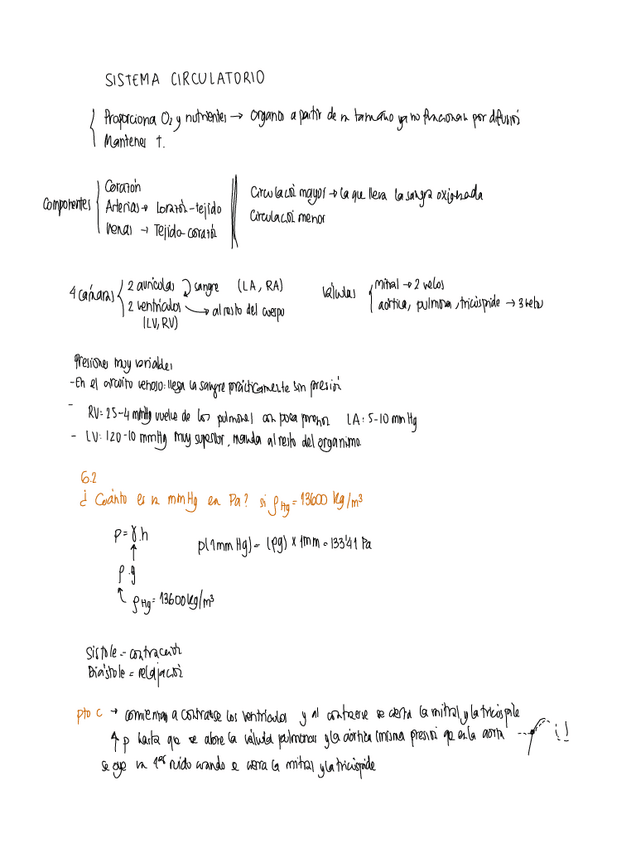 SISTEMA CIRCULATORIO
Proporciona O₂ y nutrientes → organos a partir de un tamaño ya no funcionan por difusión
Mantener T.
Componentes
Corazón
Arterias → Corazón-tejido
Venas → Tejido-corazón
Circulación mayor → la que lleva la sangre oxigenada
Circulación menor
4 cámaras
2 aurículas sangre (LA, RA)
2 ventrículos → al resto del cuerpo
(LV, RV)
válvulas
mitral → 2 velos
aórtica, pulmonar, tricúspide → 3 velos
Presiones muy variables
-En el circuito venoso: llega la sangre prácticamente sin presión
- RV: 25-4 mmHg vuelve de los pulmones con poca presión LA: 5-10 mmHg
- LV: 120-10 mmHg muy superior, manda al resto del organismo
6.2
¿Cuánto es un mmHg en Pa? si ρHg = 13600 kg/m³
p = γ.h
p(1mmHg) = (ρg) × 1mm = 133'41 Pa
ρ.g
ρHg = 13600 kg/m³
Sístole = contracción
Diástole = relajación
pto C → comienzan a contraerse los ventrículos y al contraerse se cierra la mitral y la tricúspide
↑ p hasta que se abre la válvula pulmonar y la aórtica (misma presión que en la aorta
se oye un 1er ruido cuando se cierra la mitral y la tricúspide